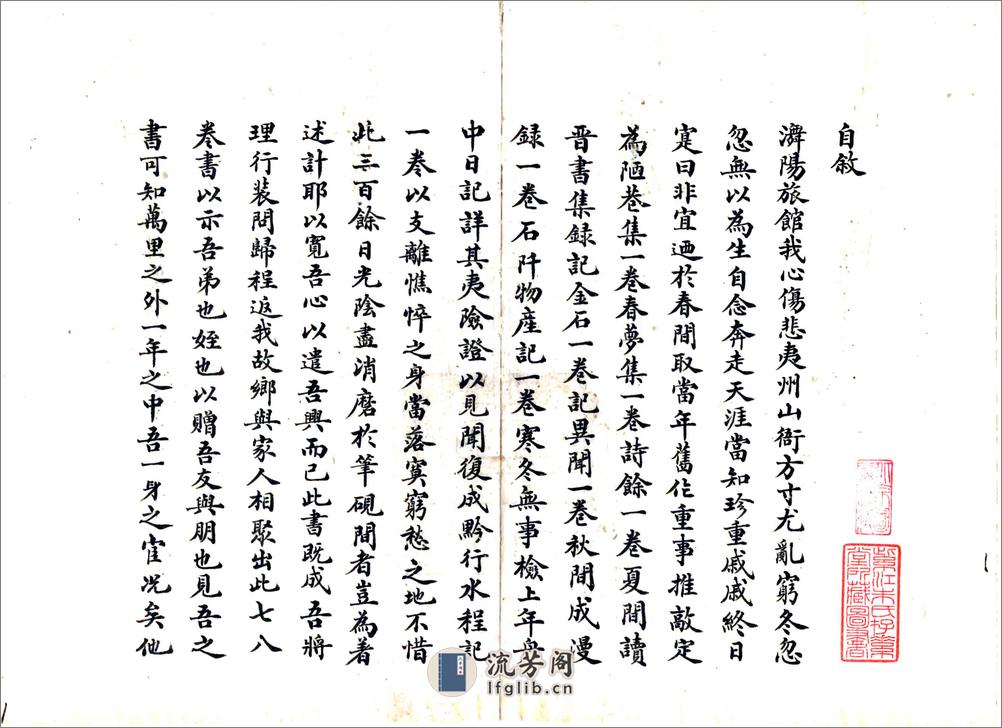 自敘
濟陽旅館我心傷悲夷州山衙方寸尤亂窮冬忽
忽無以為生自念奔走天涯當知珍重戚戚終日
寔曰非宜迺於春間取當年舊作重事推敲定
為陋巷集一卷春夢集一卷詩餘一卷夏間讀
晉書集録記金石一卷記異聞一卷秋間成漫
録一卷石阡物産記一卷寒冬無事檢上年舟
中日記詳其夷險證以見聞復成黔行水程記
一卷以支離憔悴之身當落寞窮愁之地不惜
此三百餘日光陰盡消磨於筆硯間者豈為著
述計耶以寬吾心以遣吾興而已此書既成吾將
理行装問歸程返我故鄉與家人相聚出此七八
卷書以示吾弟也姪也以贈吾友與朋也見吾之
書可知萬里之外一年之中吾一身之宦况矣他
堂所藏圖書
流芳阁
lfglib.cn